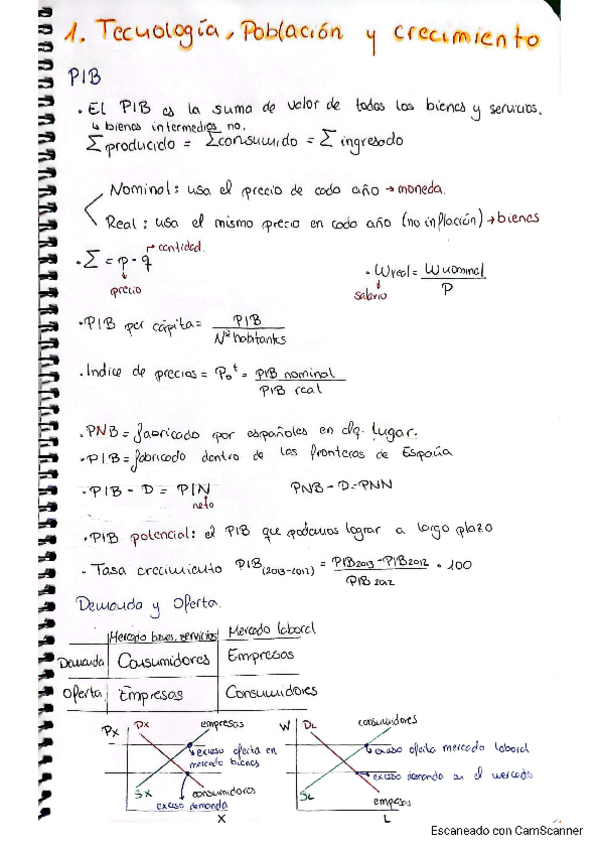 1. Tecnología, Población y crecimiento
PIB
· El PIB es la suma de valor de todos los bienes y servicios.
↳ bienes intermedios no.
Σ producido = Σ consumido = Σ ingresado
Nominal: usa el precio de cada año → moneda.
Real: usa el mismo precio en cada año (no inflación) → bienes
· Σ = p · q
cantidad.
precio
· Wreal = Wnominal / P
salario
· PIB per cápita = PIB / Nº habitantes
· Indice de precios = P₀ᵗ = PIB nominal / PIB real
· PNB = fabricado por españoles en clq. lugar.
· PIB = fabricado dentro de las fronteras de España
· PIB - D = PIN
PNB - D = PNN
neto
· PIB potencial: el PIB que podemos lograr a largo plazo
- Tasa crecimiento PIB (2013-2012) = PIB2013 - PIB2012 / PIB 2012 · 100
Demanda y Oferta.
Mercado bienes, servicios Mercado laboral
Demanda Consumidores Empresas
Oferta Empresas Consumidores
Px Dx empresas
exceso oferta en
mercado bienes
Sx consumidores
exceso demanda
X
W DL consumidores
exceso oferta mercado laboral
exceso demanda en el mercado
SL empresas
L
Escaneado con CamScanner